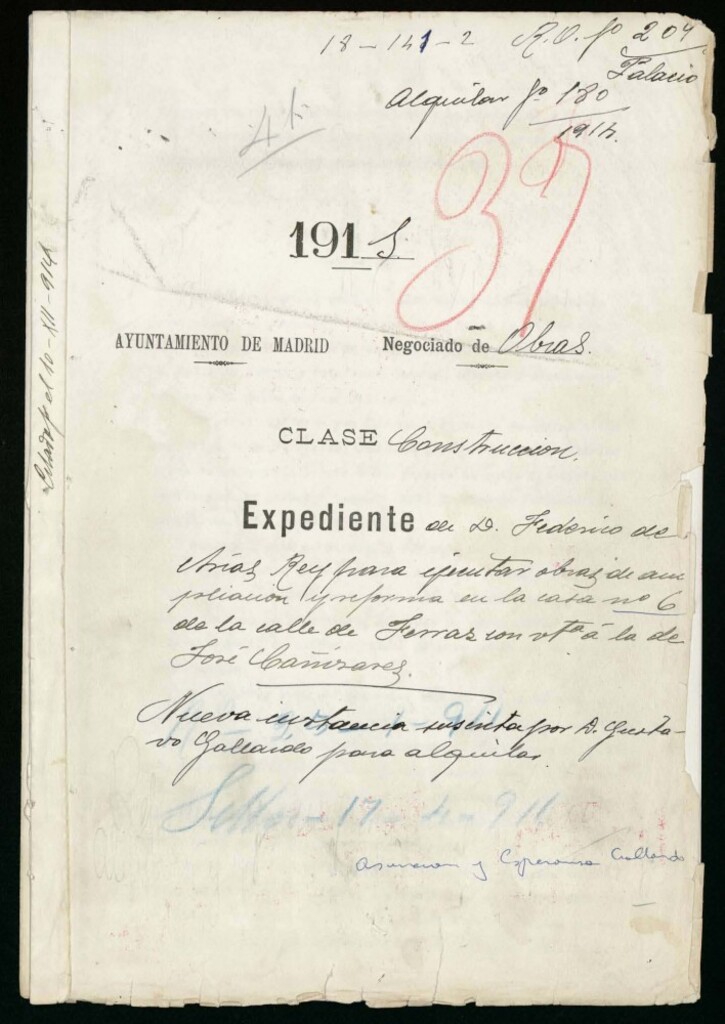 18-141-2 R.O. fº 204
Palacio
Alquilar fº 180
1914.
39
191
AYUNTAMIENTO DE MADRID Negociado de Obras.
CLASE Construccion.
Expediente de D. Federico de
Arias Rey para ejecutar obras de am
pliacion y reforma en la casa nº 6
de la calle de Ferraz con vta á la de
José Cañizares.
Nueva instancia suscrita por D. Gusta-
vo Gallardo para alquilar.
17-4-911
Asuncion y Esperanza Gallardo
el 10-XII-914